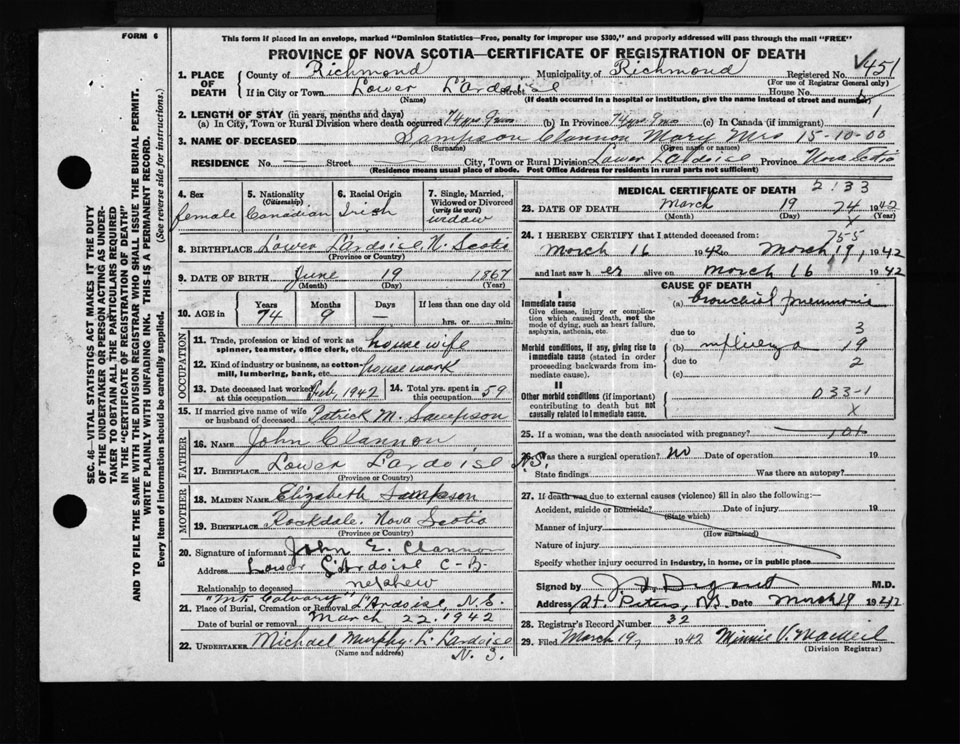 FORM 6
This form if placed in an envelope, marked "Dominion Statistics—Free, penalty for improper use $300," and properly addressed will pass through the mail "FREE"
PROVINCE OF NOVA SCOTIA—CERTIFICATE OF REGISTRATION OF DEATH
SEC. 46—VITAL STATISTICS ACT MAKES IT THE DUTY
OF THE UNDERTAKER OR PERSON ACTING AS UNDER-
TAKER TO OBTAIN ALL THE PARTICULARS REQUIRED
IN THE "CERTIFICATE OF REGISTRATION OF DEATH"
AND TO FILE THE SAME WITH THE DIVISION REGISTRAR WHO SHALL ISSUE THE BURIAL PERMIT.
WRITE PLAINLY WITH UNFADING INK. THIS IS A PERMANENT RECORD.
Every item of information should be carefully supplied. (See reverse side for instructions.)
1. PLACE OF DEATH County of Richmond Municipality of Richmond Registered No. 451
(For use of Registrar General only)
If in City or Town Lower L'Ardoise Street House No.
(Name) (If death occurred in a hospital or institution, give the name instead of street and number)
2. LENGTH OF STAY (in years, months and days)
(a) In City, Town or Rural Division where death occurred 74 yrs 9 mo (b) In Province 74 yrs 9 mo (c) In Canada (if immigrant) 1
3. NAME OF DECEASED Sampson Clannon Mary Mrs 15-10-00
(Surname) (Given name or names)
RESIDENCE No. — Street — City, Town or Rural Division Lower L'Ardoise Province Nova Scotia
(Residence means usual place of abode. Post Office Address for residents in rural parts not sufficient)
4. Sex female
5. Nationality (Citizenship) Canadian
6. Racial Origin Irish
7. Single, Married, Widowed or Divorced (write the word) widow
8. BIRTHPLACE Lower L'Ardoise, N. Scotia
(Province or Country)
9. DATE OF BIRTH June 19 1867
(Month) (Day) (Year)
10. AGE in Years 74 Months 9 Days — If less than one day old
hrs. or min.
OCCUPATION
11. Trade, profession or kind of work as spinner, teamster, office clerk, etc. housewife
12. Kind of industry or business, as cotton-mill, lumbering, bank, etc. housework
13. Date deceased last worked at this occupation Feb, 1942 14. Total yrs. spent in 59
15. If married give name of wife or husband of deceased Patrick M. Sampson
FATHER
16. NAME John Clannon
17. BIRTHPLACE Lower L'Ardoise N.S.
(Province or Country)
MOTHER
18. MAIDEN NAME Elizabeth Sampson
19. BIRTHPLACE Rockdale, Nova Scotia
(Province or Country)
20. Signature of informant John E. Clannon
Address Lower L'Ardoise C-B
Relationship to deceased nephew
21. Place of Burial, Cremation or Removal "Mt Calvary" L'Ardoise, N.S.
Date of burial or removal March 22, 1942
22. UNDERTAKER Michael Murphy L. L'Ardoise N. S.
(Name and address)
MEDICAL CERTIFICATE OF DEATH 2:33
23. DATE OF DEATH March 19 74 1942
(Month) (Day) X (Year)
24. I HEREBY CERTIFY that I attended deceased from: 75-5
March 16 1942 to March 19, 1942
and last saw her alive on March 16 1942
CAUSE OF DEATH
I
Immediate cause (a) bronchial pneumonia
Give disease, injury or complication which caused death, not the mode of dying, such as heart failure, asphyxia, asthenia, etc.
due to 3
Morbid conditions, if any, giving rise to immediate cause (stated in order proceeding backwards from immediate cause). (b) influenza 19
due to 2
(c)
II
Other morbid conditions (if important) contributing to death but not causally related to immediate cause. 033-1
X
25. If a woman, was the death associated with pregnancy? 101
26. Was there a surgical operation? no Date of operation 19
State findings Was there an autopsy?
27. If death was due to external causes (violence) fill in also the following:—
Accident, suicide or homicide? Date of injury 19
(State which)
Manner of injury
(How sustained)
Nature of injury
Specify whether injury occurred in industry, in home, or in public place
Signed by M.D.
Address St. Peters, N.S. Date March 19 1942
28. Registrar's Record Number 32
29. Filed March 19, 1942 Minnie V. MacNeil
(Division Registrar)